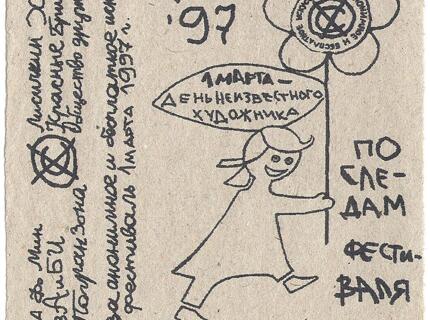 '97
1 МАРТА –
ДЕНЬ НЕИЗВЕСТНОГО
ХУДОЖНИКА
ПО
СЛЕ-
ДАМ
ФЕСТИ-
ВАЛЯ
зАиБИ
Погранзона
за анонимное и бесплатное
фестиваль 1 марта 1997 г.
Красные
Общество